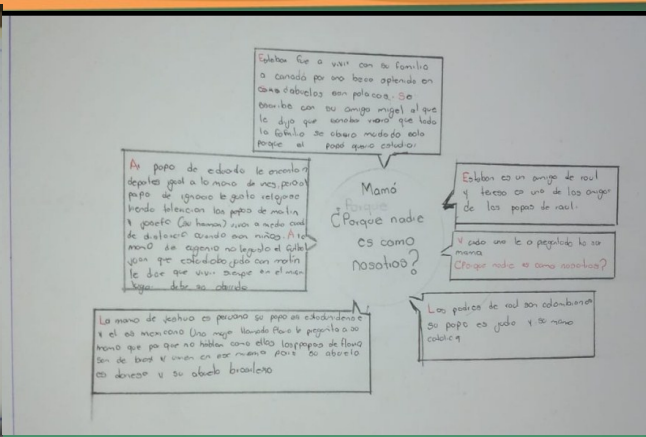 Esteban fue a vivir con su familia
a canadá por una beca
abuelos son polacos. Se
escribe con su amigo migel al que
le dijo que sonaba raro que toda
la familia se mudado solo
porque el papá queria estudiar
Mamá
¿Porque nadie
es como
nosotros?
Al papá de eduardo le encanta
deportes igual a la mamá de ines, pero al
papá de ignacio le gusta relajarse
viendo television los papás de matin
y josefa viven a media cuadra
de distancia cuando eran niños. A la
mamá de eugenio no le gusta el futbol
juan que estadaba judo con matin
le dice que vivir siempre en el mism
lugar debe ser aburrido
Esteban es un amigo de raul
y teresa es una de las amigas
de los papas de raul.
Y cada uno le a pregutado ha su
mama
¿Porque nadie es como nosotros?
Los padres de raul son colombianos
su papá es judo y su mama
catolica
La mama de joshua es peruana su papá es estadunidense
y el es mexicano Una mujer llamada le pregunta a su
mamá que por que no hablan como ellos los papas de
son de y viven en ese mismo pais su abuela
es danesa y su abuelo brasileño